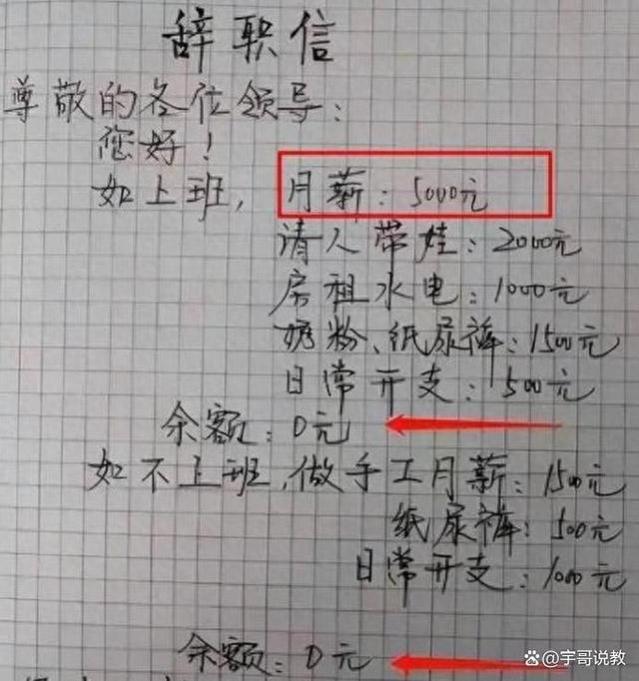 辞职信
尊敬的各位领导：
您好！
如上班，月薪：5000元
请人带娃：2000元
房租水电：1000元
奶粉、纸尿裤：1500元
日常开支：500元
余额：0元
如不上班，做手工月薪：1500元
纸尿裤：500元
日常开支：1000元
余额：0元
@宇哥说教